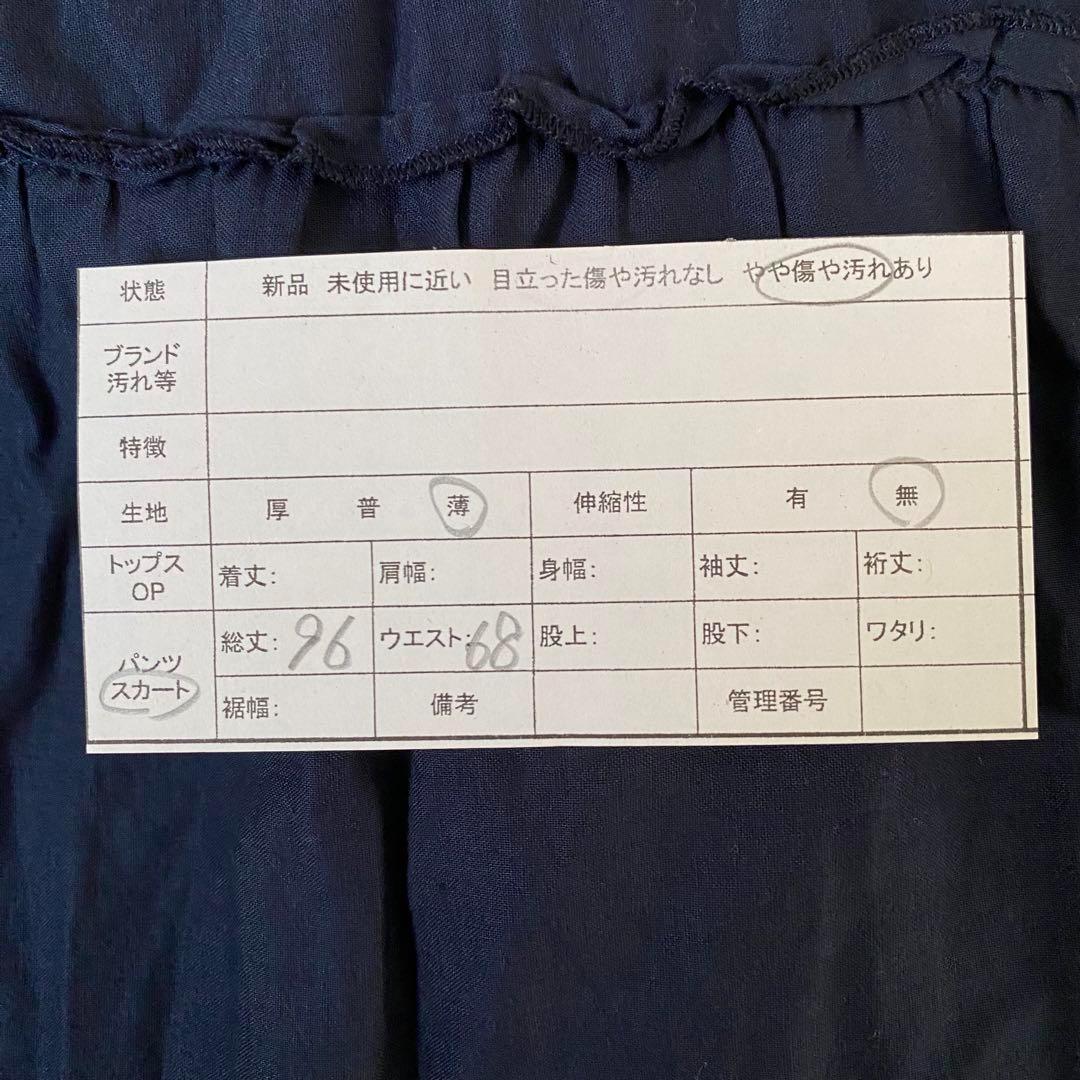 状態 新品 未使用に近い 目立った傷や汚れなし やや傷や汚れあり
ブランド
汚れ等
特徴
生地 厚 普 薄 伸縮性 有 無
トップス
OP 着丈: 肩幅: 身幅: 袖丈: 裄丈:
総丈: 96 ウエスト: 68 股上: 股下: ワタリ:
パンツ
スカート
裾幅: 備考 管理番号